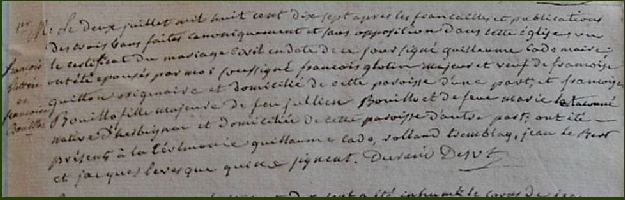 1er M. Le deux juillet mil huit cent dix sept apres les fiancailles et publications
des trois bans faites canoniquement et sans opposition dans cette église, vu
le certificat du mariage civil en date de ce jour signé guillaume Cado maire
ont été épousés par moi soussigné françois glotin majeur et veuf de françoise
guitton originaire et domicilié de cette paroisse d'une part, et françoise
Bouillo fille majeure de feu jullien Bouillo et de feue marie
native d'herbignac et domiciliée de cette paroisse d'autre part, ont été
présents à la cérémonie guillaume Cado, rolland tremblay, jean le Bert
et jacques levesque qui ne signent.
françois
glotin
et
françoise
Bouillo